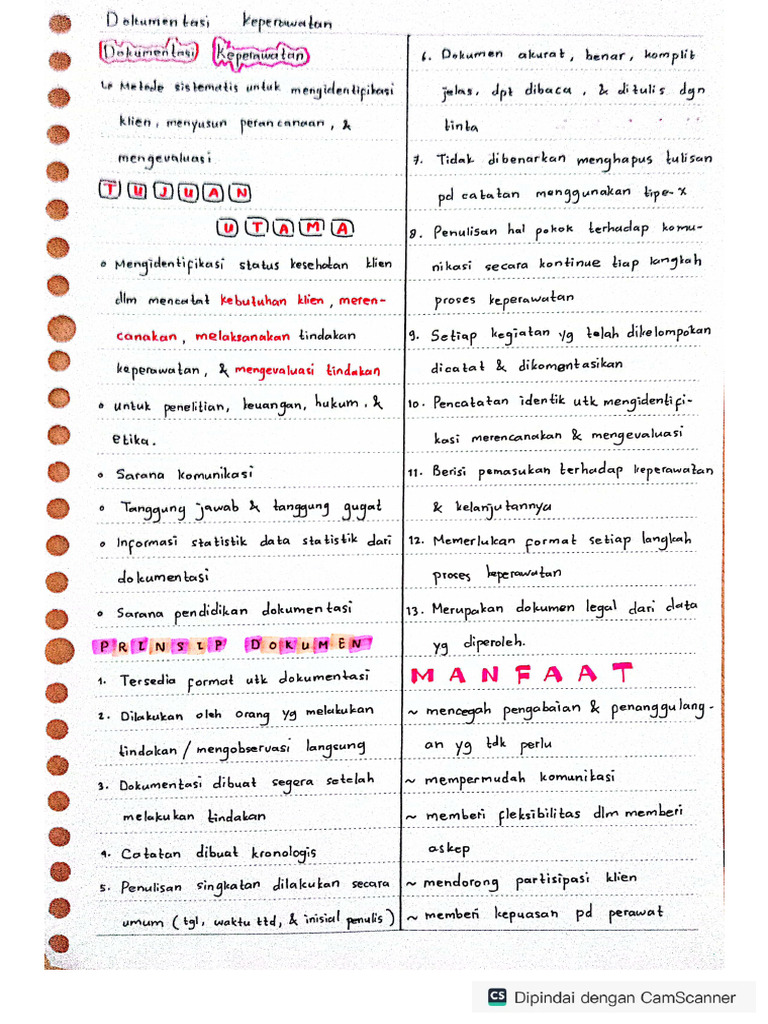 Dokumentasi Keperawatan
Dokumentasi Keperawatan
↳ Metode sistematis untuk mengidentifikasi
klien, menyusun perancanaan, &
mengevaluasi
TUJUAN
UTAMA
• Mengidentifikasi status kesehatan klien
dlm mencatat kebutuhan klien, meren-
canakan, melaksanakan tindakan
keperawatan, & mengevaluasi tindakan
• untuk penelitian, keuangan, hukum, &
etika.
• Sarana komunikasi
• Tanggung jawab & tanggung gugat
• Informasi statistik data statistik dari
dokumentasi
• Sarana pendidikan dokumentasi
PRINSIP DOKUMEN
1. Tersedia format utk dokumentasi
2. Dilakukan oleh orang yg melakukan
tindakan / mengobservasi langsung
3. Dokumentasi dibuat segera setelah
melakukan tindakan
4. Catatan dibuat kronologis
5. Penulisan singkatan dilakukan secara
umum (tgl, waktu ttd, & inisial penulis)
6. Dokumen akurat, benar, komplit
jelas, dpt dibaca, & ditulis dgn
tinta
7. Tidak dibenarkan menghapus tulisan
pd catatan menggunakan tipe-x
8. Penulisan hal pokok terhadap komu-
nikasi secara kontinue tiap langkah
proses keperawatan
9. Setiap kegiatan yg telah dikelompokan
dicatat & dikomentasikan
10. Pencatatan identik utk mengidentifi-
kasi merencanakan & mengevaluasi
11. Berisi pemasukan terhadap keperawatan
& kelanjutannya
12. Memerlukan format setiap langkah
proses keperawatan
13. Merupakan dokumen legal dari data
yg diperoleh.
MANFAAT
~ mencegah pengabaian & penanggulang-
an yg tdk perlu
~ mempermudah komunikasi
~ memberi fleksibilitas dlm memberi
askep
~ mendorong partisipasi klien
~ memberi kepuasan pd perawat
CS Dipindai dengan CamScanner